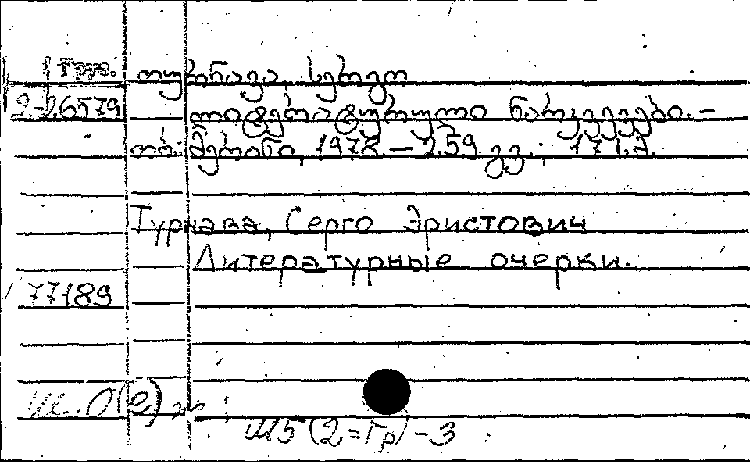 Груз. თურნავა, სერგო
2-26579 ლიტერატურული ნარკვევები. –
თბ.: მერანი, 1978. – 259 გვ.; 17 სმ.
Турнава, Серго Эристович
Литературные очерки.
77189
Ш5(2=Гр)-3